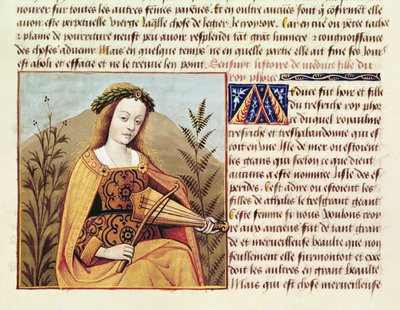 nourrie sur toutes les autres femes paiennes. Et en oultre aucuns sont q̃ afferment elle
auoir este perpetuelle vierge laq̃lle chose de legier
plaine de pourreture neust peu auoir resplendi tant grāt lumiere et congnoissance
des choses aduenir. Mais en quelque temps ne en quelle partie elle ait fine ses iours
est aboli et efface et ne le treuue len point. Sensuit listoire de meduse fille du
roy phorce
Meduse fut hoir et fille
du tresriche roy phor
ce duquel royaulme
tresriche et treshabandonne qui es
toit en vne isle de mer ou estoient
les grans qui selon ce que dient
aucuns a este nommee lisle des es
perides. Cest adire ou estoient les
filles de athalis le tresgrant geant
Ceste femme si nous voulons croy
re aux anciens fut de tant gran
de et merueilleuse beaulte que non
seullement elle surmontoit et exce
doit les autres en grant beaulte
Mais est chose merueilleuse